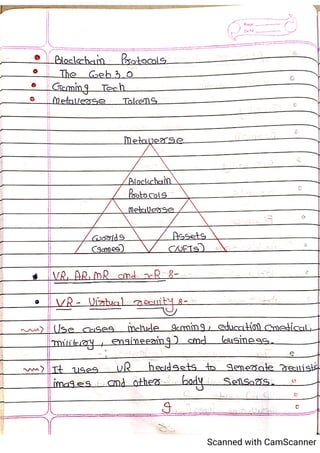 Blockchain Protocols
The Web 3.0
Gaming Tech
Metaverse Tokens
Metaverse
Blockchain
Protocols
Metaverse
Worlds
(Games)
Assets
(NFTs)
VR, AR, MR and XR :-
VR - Virtual reality :-
Use cases include gaming, education (medical,
military, engineering) and business.
It uses VR headsets to generate realistic
images and other body sensors.
Scanned with CamScanner